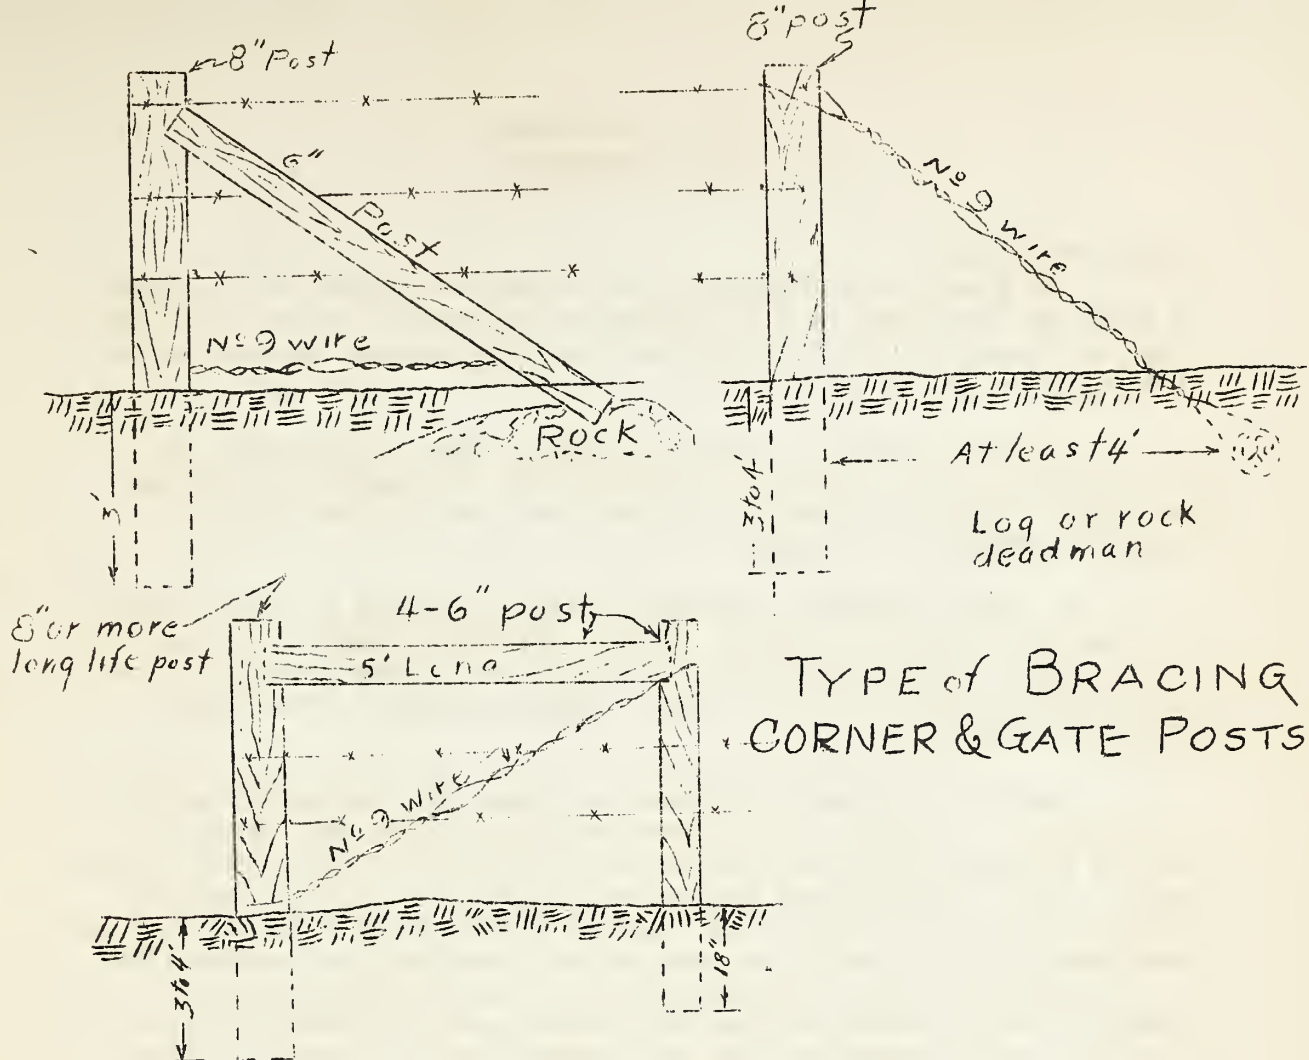 8" Post
6"
Post
Nº 9 wire
Rock
3'
8" post
Nº 9 wire
At least 4'
3 to 4'
Log or rock
deadman
8" or more
long life post
4-6" post
5' Long
Nº 9 wire
3 to 4'
18"
TYPE of BRACING
CORNER & GATE POSTS